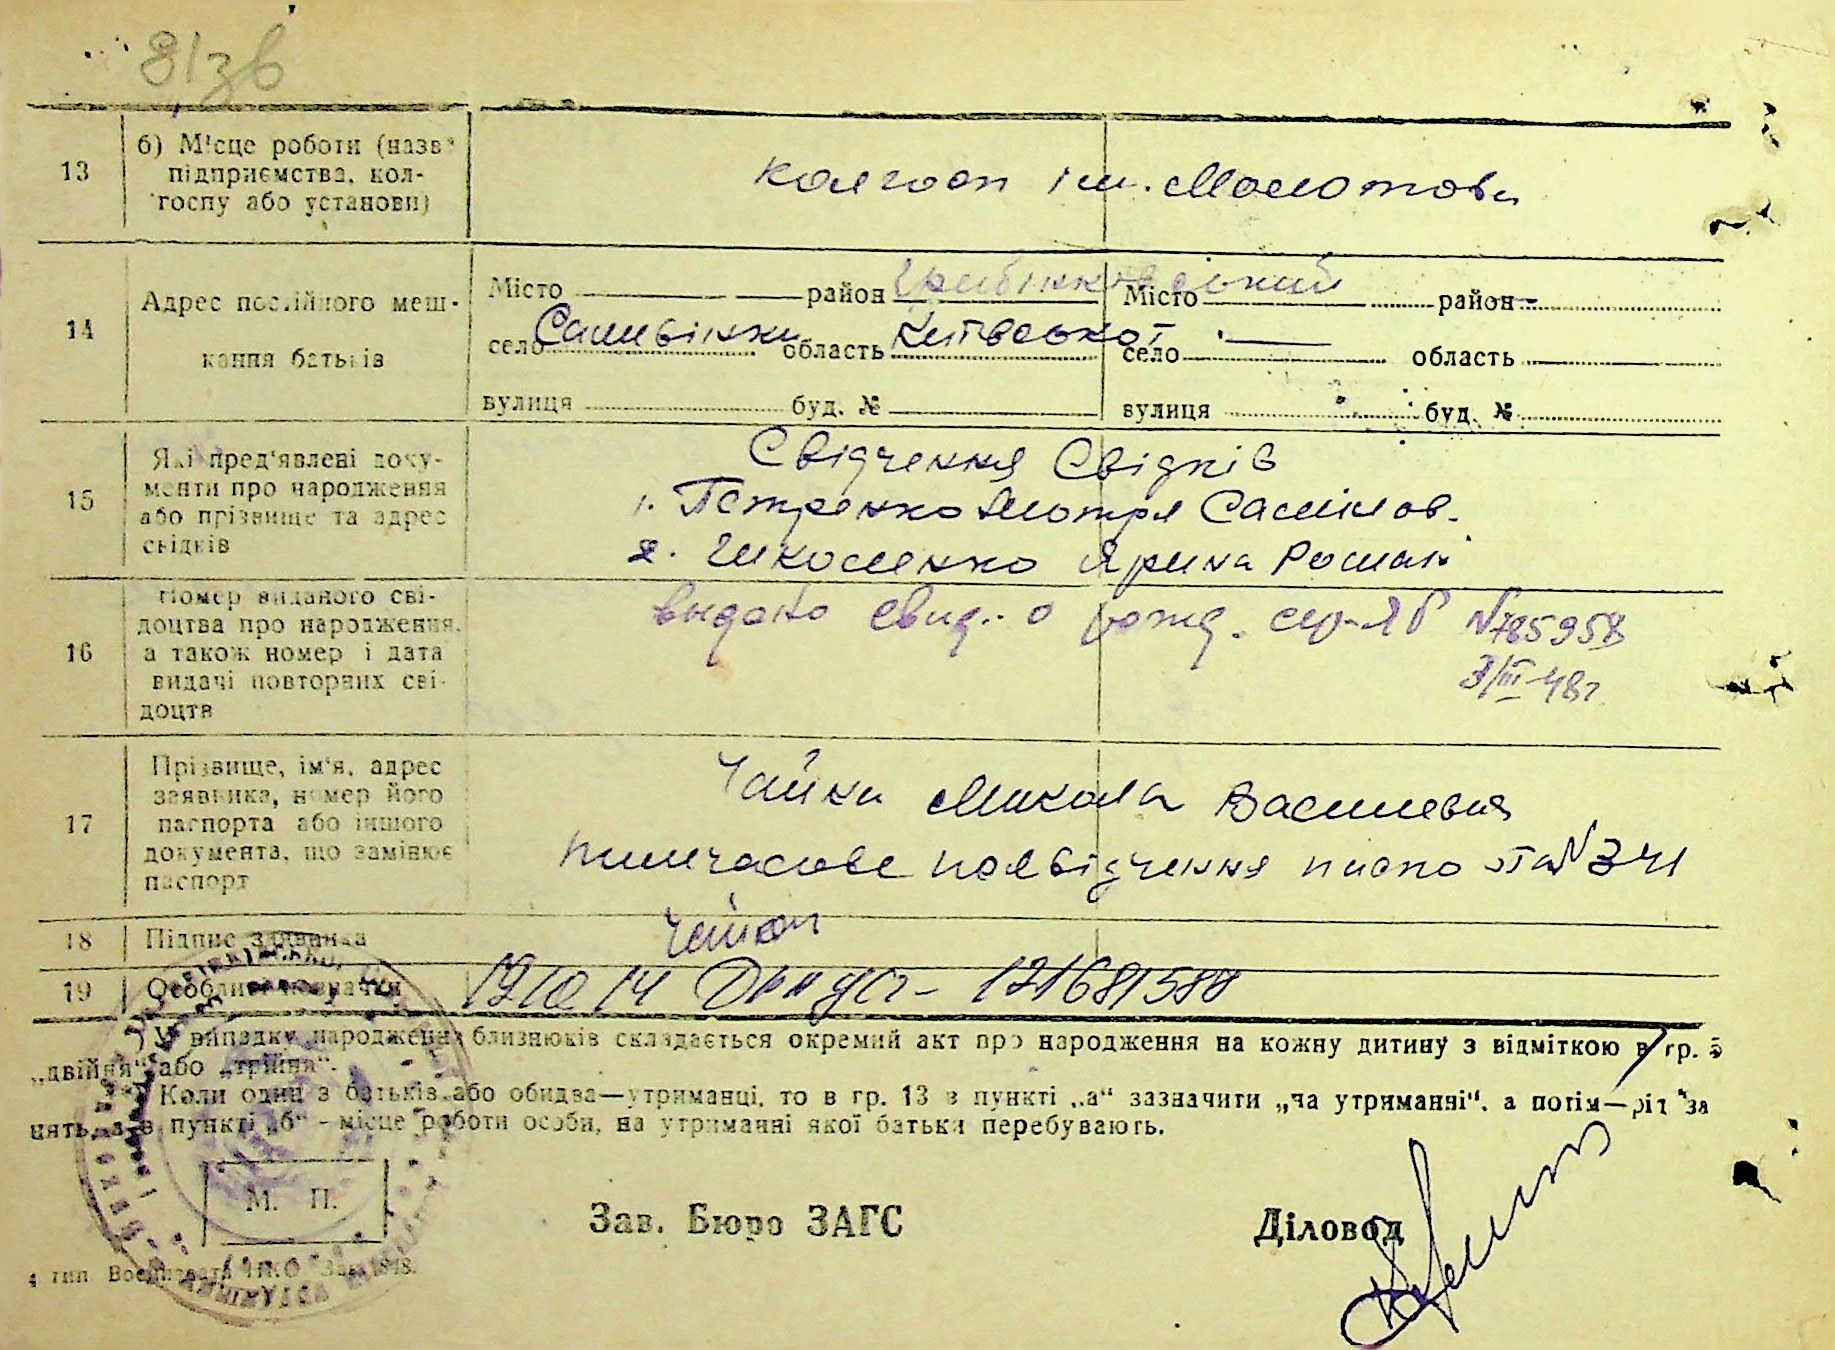 81зв
13
б) Місце роботи (назва
підприємства, кол-
госпу або установи)
колгосп ім. Молотова
14
Адрес постійного меш-
кання батьків
Місто район Гребінківський Місто район
село Саливінки область Київської село область
вулиця буд. № вулиця буд. №
15
Які пред'явлені доку-
менти про народження
або прізвище та адрес
свідків
Свідчення Свідків
1. Петренко Мотря Самійлов.
2. Шкоменко Ярина Роман
16
Номер виданого сві-
доцтва про народження,
а також номер і дата
видачі повторних сві-
доцтв
выдано свид.. о рожд. сер-ЯБ №785958
3/III-48г
17
Прізвище, ім'я, адрес
заявника, номер його
паспорта або іншого
документа, що замінює
паспорт
Чайка Микола Васильевич
тимчасове посвідчення №341
18
Підпис заявника
Чайка
19
Особливі зазначки
1210 14 121681580
У випадку народження близнюків складається окремий акт про народження на кожну дитину з відміткою в гр. 5
„двійня“ або „трійня“.
Коли один з батьків або обидва—утриманці, то в гр. 13 в пункті „а“ зазначити „на утриманні“, а потім—рід за
нять, а в пункті „б“ - місце роботи особи, на утриманні якої батьки перебувають.
М. П.
Зав. Бюро ЗАГС
Діловод
4 тип Воениздата НКО Зак. 1848.